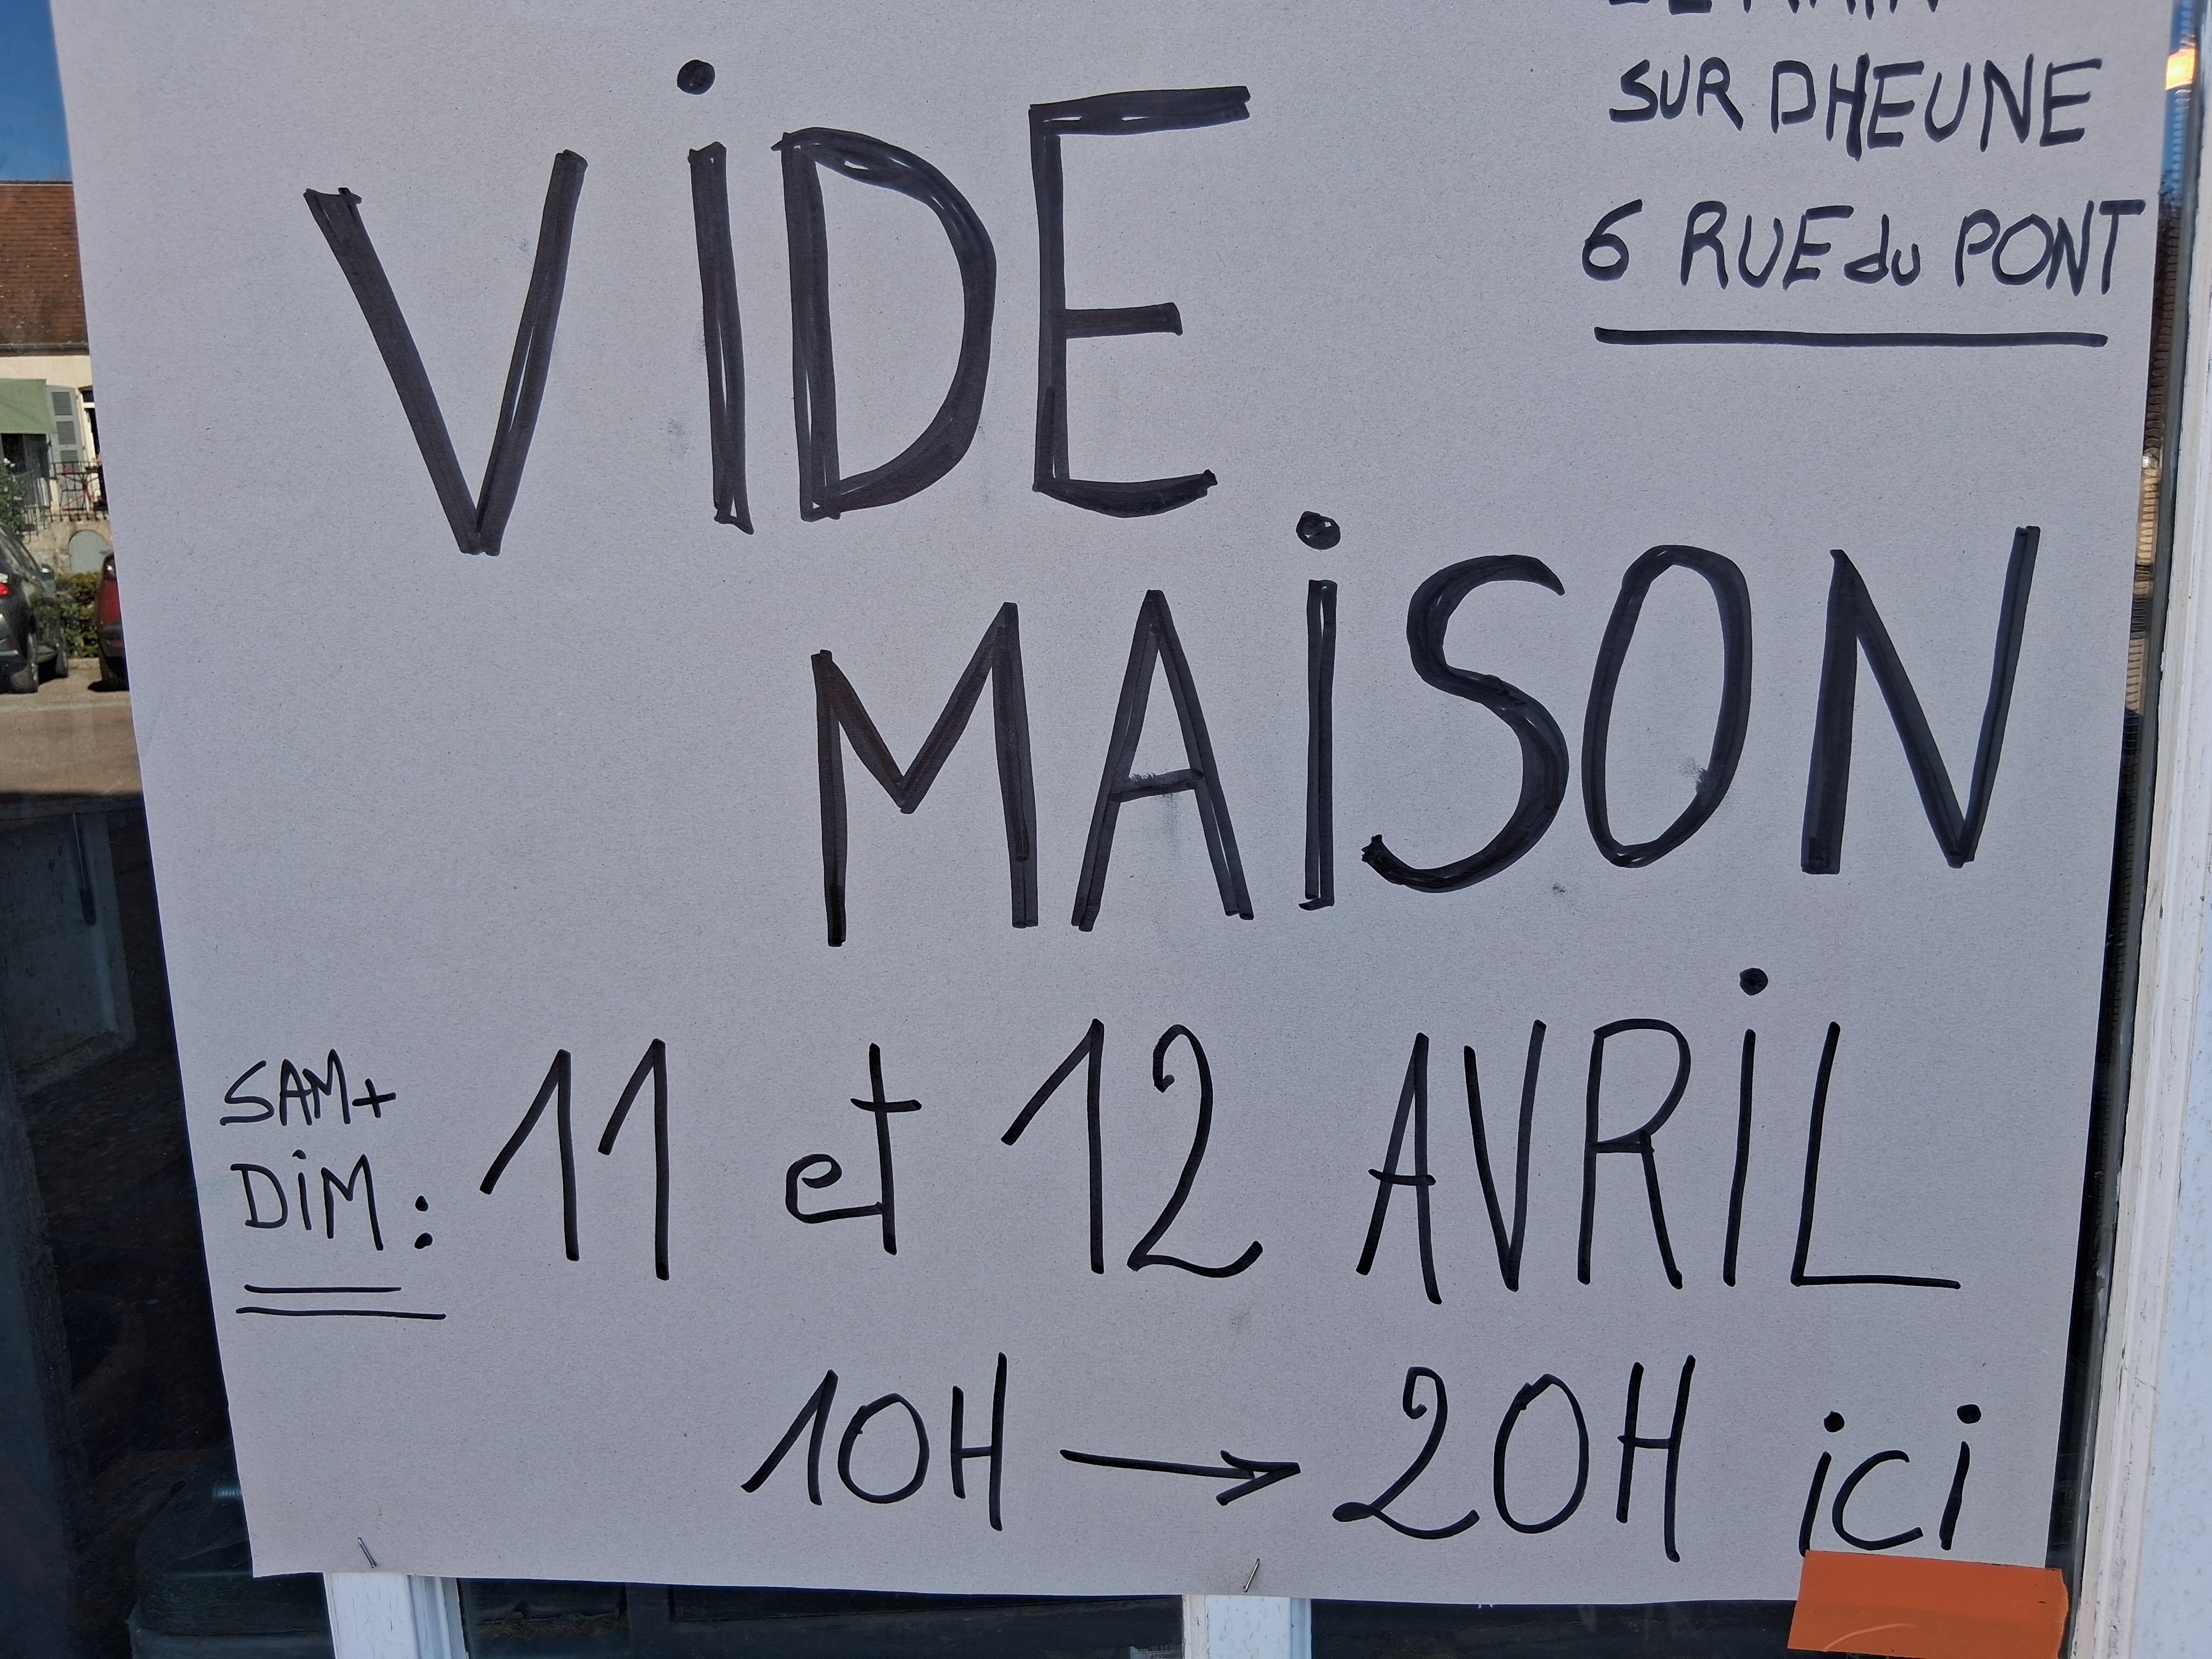 SUR DHEUNE
6 RUE du PONT
ViDE
MAiSON
SAM+
DiM : 11 et 12 AVRiL
10H → 20H ici